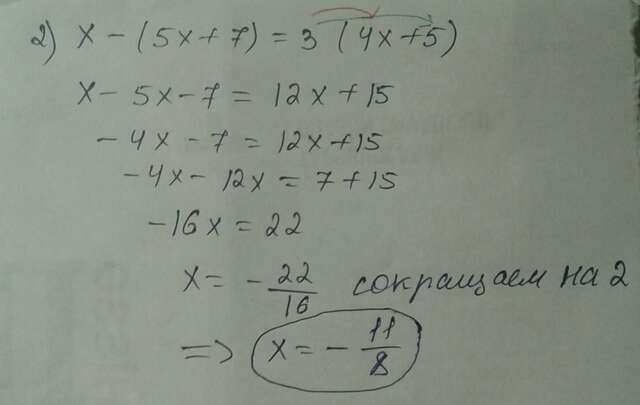 2) x - (5x + 7) = 3 (4x + 5)
x - 5x - 7 = 12x + 15
- 4x - 7 = 12x + 15
- 4x - 12x = 7 + 15
- 16x = 22
x = - 22/16 сокращаем на 2
=> x = - 11/8